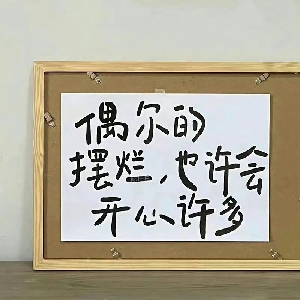 偶尔的
摆烂，也许会
开心许多